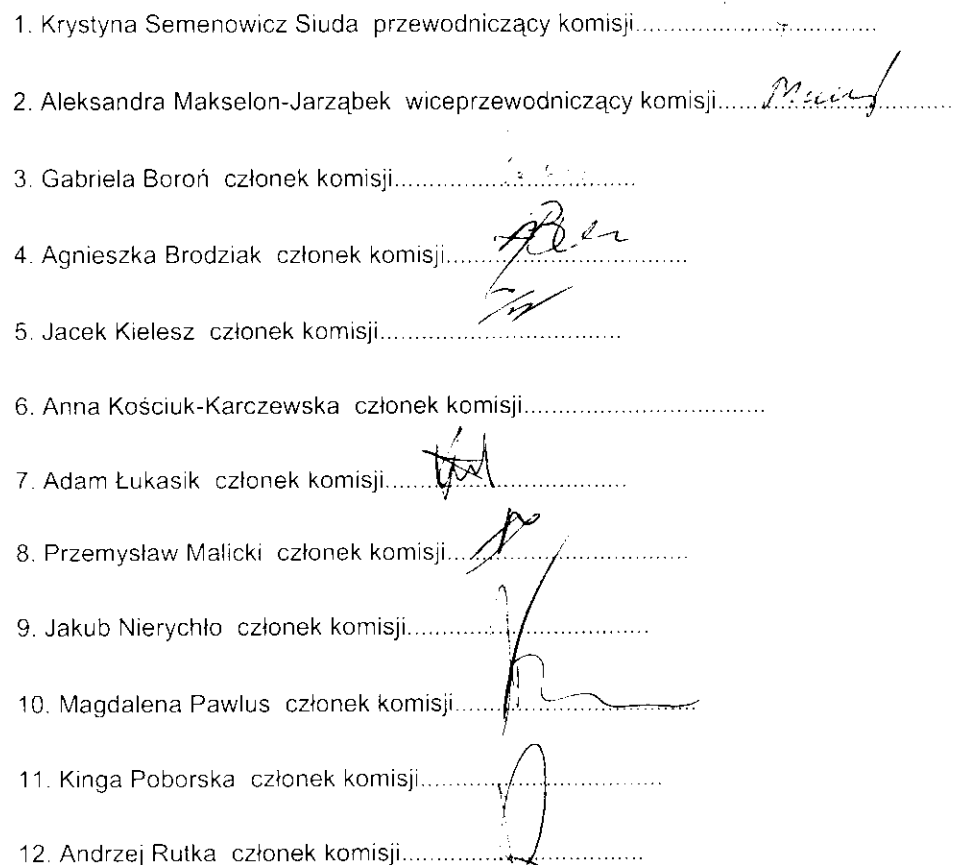 1. Krystyna Semenowicz Siuda przewodniczący komisji
2. Aleksandra Makselon-Jarząbek wiceprzewodniczący komisji
3. Gabriela Boroń członek komisji
4. Agnieszka Brodziak członek komisji
5. Jacek Kielesz członek komisji
6. Anna Kościuk-Karczewska członek komisji
7. Adam Łukasik członek komisji
8. Przemysław Malicki członek komisji
9. Jakub Nierychło członek komisji
10. Magdalena Pawlus członek komisji
11. Kinga Poborska członek komisji
12. Andrzej Rutka członek komisji